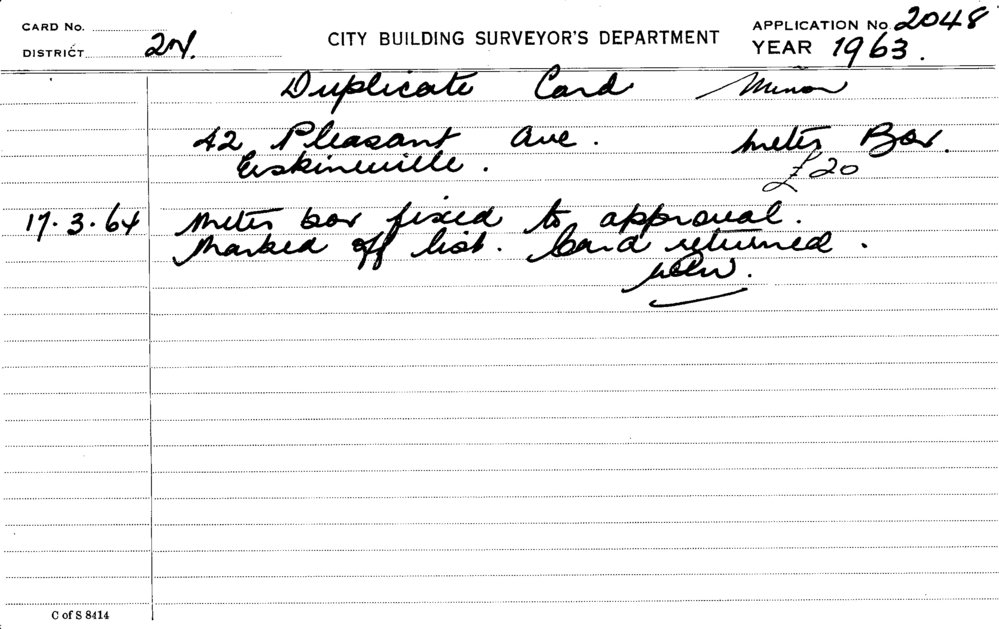 CARD No.
APPLICATION No 2048
DISTRICT 2N.
CITY BUILDING SURVEYOR'S DEPARTMENT
YEAR 1963.
Duplicate Card Minor
42 Pleasant Ave. Meter Box.
Erskineville. £20
17.3.64 Meter box fixed to approval.
Marked off list. Card returned.
C of S 8414